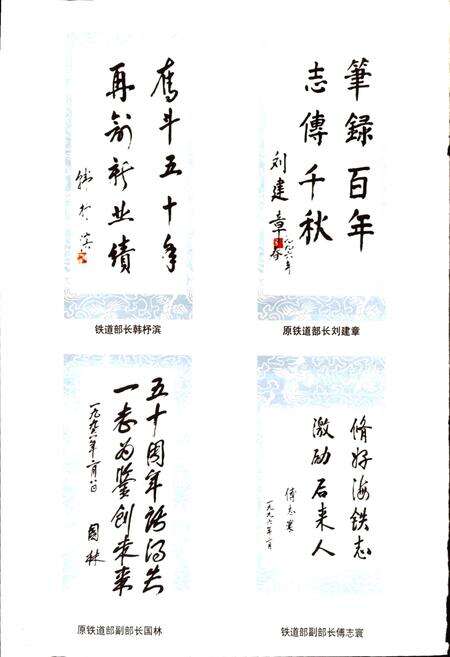 奮斗五十年
再創新业绩
韩杼滨
铁道部长韩杼滨
筆録百年
志傳千秋
刘建章
一九九六年春
原铁道部长刘建章
五十周年话得失
一志为鉴创未来
国林
一九九六年二月八日
原铁道部副部长国林
修好海铁志
激励后来人
傅志寰
一九九六年二月
铁道部副部长傅志寰